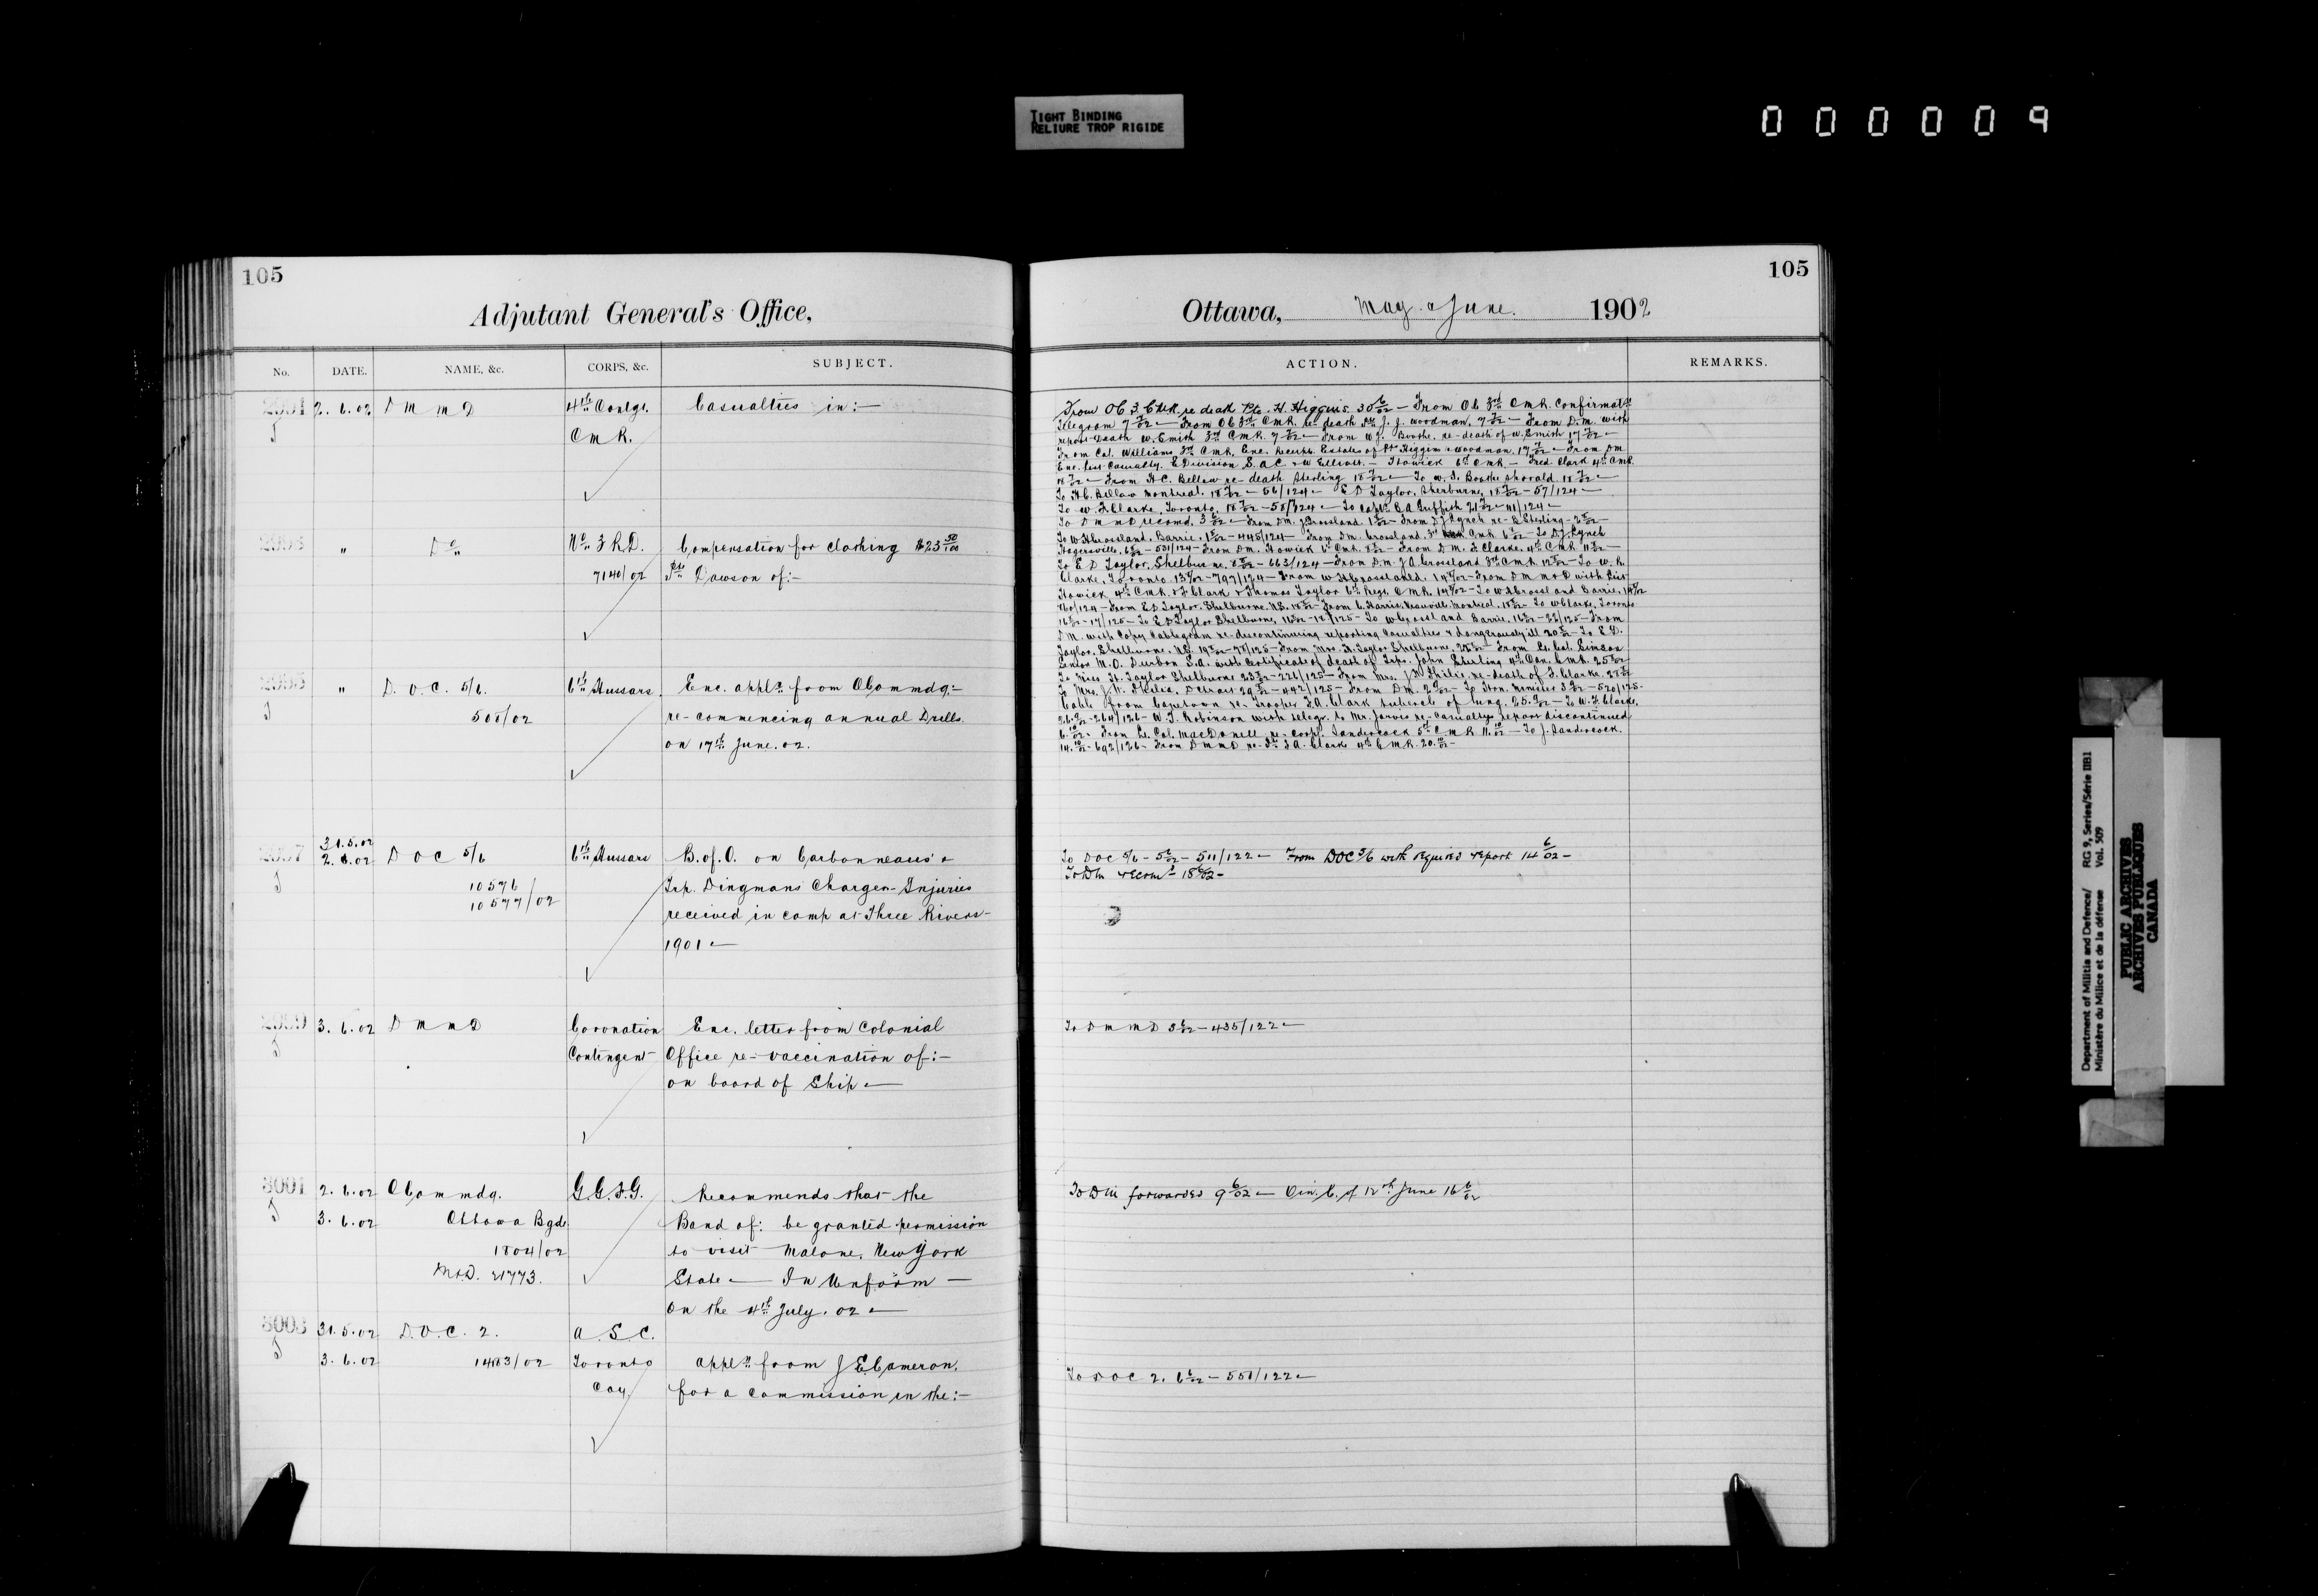 TIGHT BINDING
RELIURE TROP RIGIDE
000009
105
Adjutant General's Office,
No. DATE. NAME, &c. CORPS, &c. SUBJECT.
2. 6. 02 D M M D 4th Contgt. Casualties in:—
C M R.
" Do No 3 R.D. Compensation for clothing $23 50/100
7140/02 Pte Dawson of:—
2995 " D. O. C. 5/6. 6th Hussars. Enc. appln from O Commdg:—
505/02 re-commencing annual Drills.
on 17th June. 02.
31.5.02
2997 2.6.02 D O C 5/6 6th Hussars B. of. O. on Carbonneau's &
10576 Trp. Dingmans Charges - Injuries
10577/02 received in camp at Three Rivers -
1901 —
2999 3. 6. 02 D M M D Coronation Enc. letter from Colonial
Contingent Office re-vaccination of:—
on board of Ship —
3001 2. 6. 02 O Commdg. G.G.F.G. Recommends that the
3. 6. 02 Ottawa Bgde Band of: be granted permission
1804/02 to visit Malone, New York
M&D. 21773. State — In Uniform —
on the 4th July. 02 —
3003 31.5.02 D.O.C. 2. A. S. C.
3. 6. 02 1483/02 Toronto appln from J E Cameron.
Coy. for a commission in the:—
105
Ottawa, May & June. 1902
ACTION. REMARKS.
From OC 3. CMR. re death Pte. H. Higgins. 30 6/02 — From OC 3rd CMR. Confirmat
Telegram 7 7/02 — From OC 3rd CMR. re-death Pte J. J. Woodman. 7 7/02 — From D.M. with
report Death W. Smith 3rd CMR. 7 7/02 — From W.J. Boothe. re-death of W. Smith 17 7/02 —
From Col. Williams 3rd CMR. Enc. Estates of Pte Higgins & Woodman. 17 7/02 — From DM
Enc. list Casualty. E Division S.A.C. W Elliott. — Howick 6th CMR — Fred Clark 4th CMR.
18 7/02 — From H.C. Bellew re-death Sterling 18 7/02 — To W. J. Boothe Thorold 18 7/02 —
To H.C. Bellew Montreal. 18 7/02 — 56/124 — E D Taylor, Sherburne, 18 7/02 — 57/124 —
To W. F. Clarke, Toronto, 18 7/02 — 58/124 — To Capt. C A Griffith 21 7/02 — 111/124 —
To W H Crossland, Barrie. 1 8/02 — 445/124 — From DM. Crossland. 3rd CMR 6 8/02 — To D J Lynch
Hagersville. 6 8/02 — 531/124 — From DM. Howick 6th CMR. 8 8/02 — From D M. F. Clarke. 4th CMR 11 8/02 —
To E D Taylor, Shelburne, 8 8/02 — 663/124 — From D.M. J A. Crossland 3rd CMR 12 8/02 — To W. F.
Clarke, Toronto 13 8/02 — 797/124 — From W H Crossland. 14 8/02 — From D M M & D with
Howick 4th CMR. & F. Clark & Thomas Taylor 6th Regt. CMR. 14 8/02 — To W H Crossland Barrie,
/124 — From E D Taylor. Shelburne. NS. 18 8/02 — From C. Harris. Montreal. 18 8/02 — To W Clarke, Toronto
16 8/02 — 17/125 — To E D Taylor Shelburne, 16 8/02 — 18/125 — To W Crossland Barrie. 16 8/02 — 22/125 — From
D M. with Copy Cablegram re-discontinuing reporting Casualties & dangerously ill 20 8/02 — To E D.
Taylor. Shelburne. NS. 19 8/02 — 78/125 — From Mrs. H. Taylor Shelburne. 8/02 — From Lt. Col. Simson
Senior M.O. Durban S.A. with certificate of death of Trpr. John Sterling 4th Can. CMR. 25 8/02
To Miss H. Taylor Shelburne 23 8/02 — 226/125 — From Mrs. J W Philis re-death of F. Clarke. 27 8/02
To Mrs. J W. Philis. Detroit 29 8/02 — 442/125 — From D M. 2 9/02 — To Hon. Minister 3 9/02 — 520/125 —
Cable from Capetown re-Trooper F.A. Clark tubercle of lung. 25. 9/02 — To W. F. Clarke.
26 9/02 — 264/126 — W. F. Robinson with telegr. to Mr. Jarvis re-casualty report discontinued
6. 10/02 — From Lt. Col. MacDonell re-Corpl. Sandercock 5th CMR 11. 10/02 — To J. Sandercock.
14. 10/02 — 692/126 — From D M M D re-Pte F.A. Clark 4th CMR. 20. 10/02 —
To DOC 5/6 — 5 6/02 — 511/122 — From DOC 5/6 with required report 14 6/02 —
To DM recomd 18 6/02 —
To D M M D 3 6/02 — 435/122 —
To D M forwarded 9 6/02 — O in C. of 12th June 16 6/02
To D O C 2. 6 6/02 — 551/122 —
Department of Militia and Defence/ RG 9, Series/Série IIB1
Ministère du Milice et de la défense Vol. 509
PUBLIC ARCHIVES
ARCHIVES PUBLIQUES
CANADA